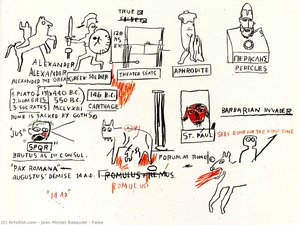 TRUE
120
B.C.
ALEXANDER
ALEXANDER
ALEXANDER THE GREAT
GREEK SOLDIER
THEATER SEATS
APHRODITE
ΠΕΡΙΚΛΗΣ
PERICLES
1. PLATO
440 B.C.
2. HOMER
550 B.C.
3. SOCRATES
MCLXVIII
146 B.C.
CARTHAGE
ROME IS SACKED BY GOTHS
"JUS"
SPQR
BRUTUS AS 1ST CONSUL
ST. PAUL
BARBARIAN INVADER
SEES ROME FOR THE FIRST TIME
FORUM AT ROME
"PAX ROMANA"
AUGUSTUS' DEMISE 14 A.D.
ROMULUS REMUS
ROMULUS
"14 AD"
(c) ArtsDot.com - Jean Michel Basquiat - False